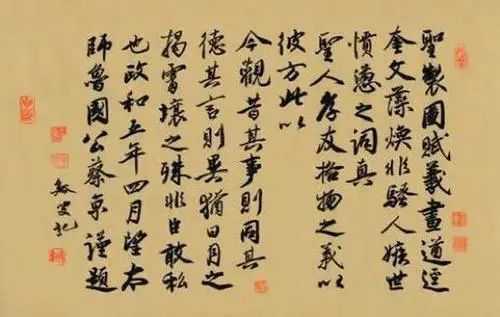 聖製圖賦羲畫道逕
奎文藻煥非騷人嫉世
憤懣之詞真
聖人孝友格物之義以
彼方此以
今觀昔其事則同其
德其言則異猶日月之
揭霄壤之殊非臣敢私
也政和五年四月望太
師魯國公蔡京謹題
叟記